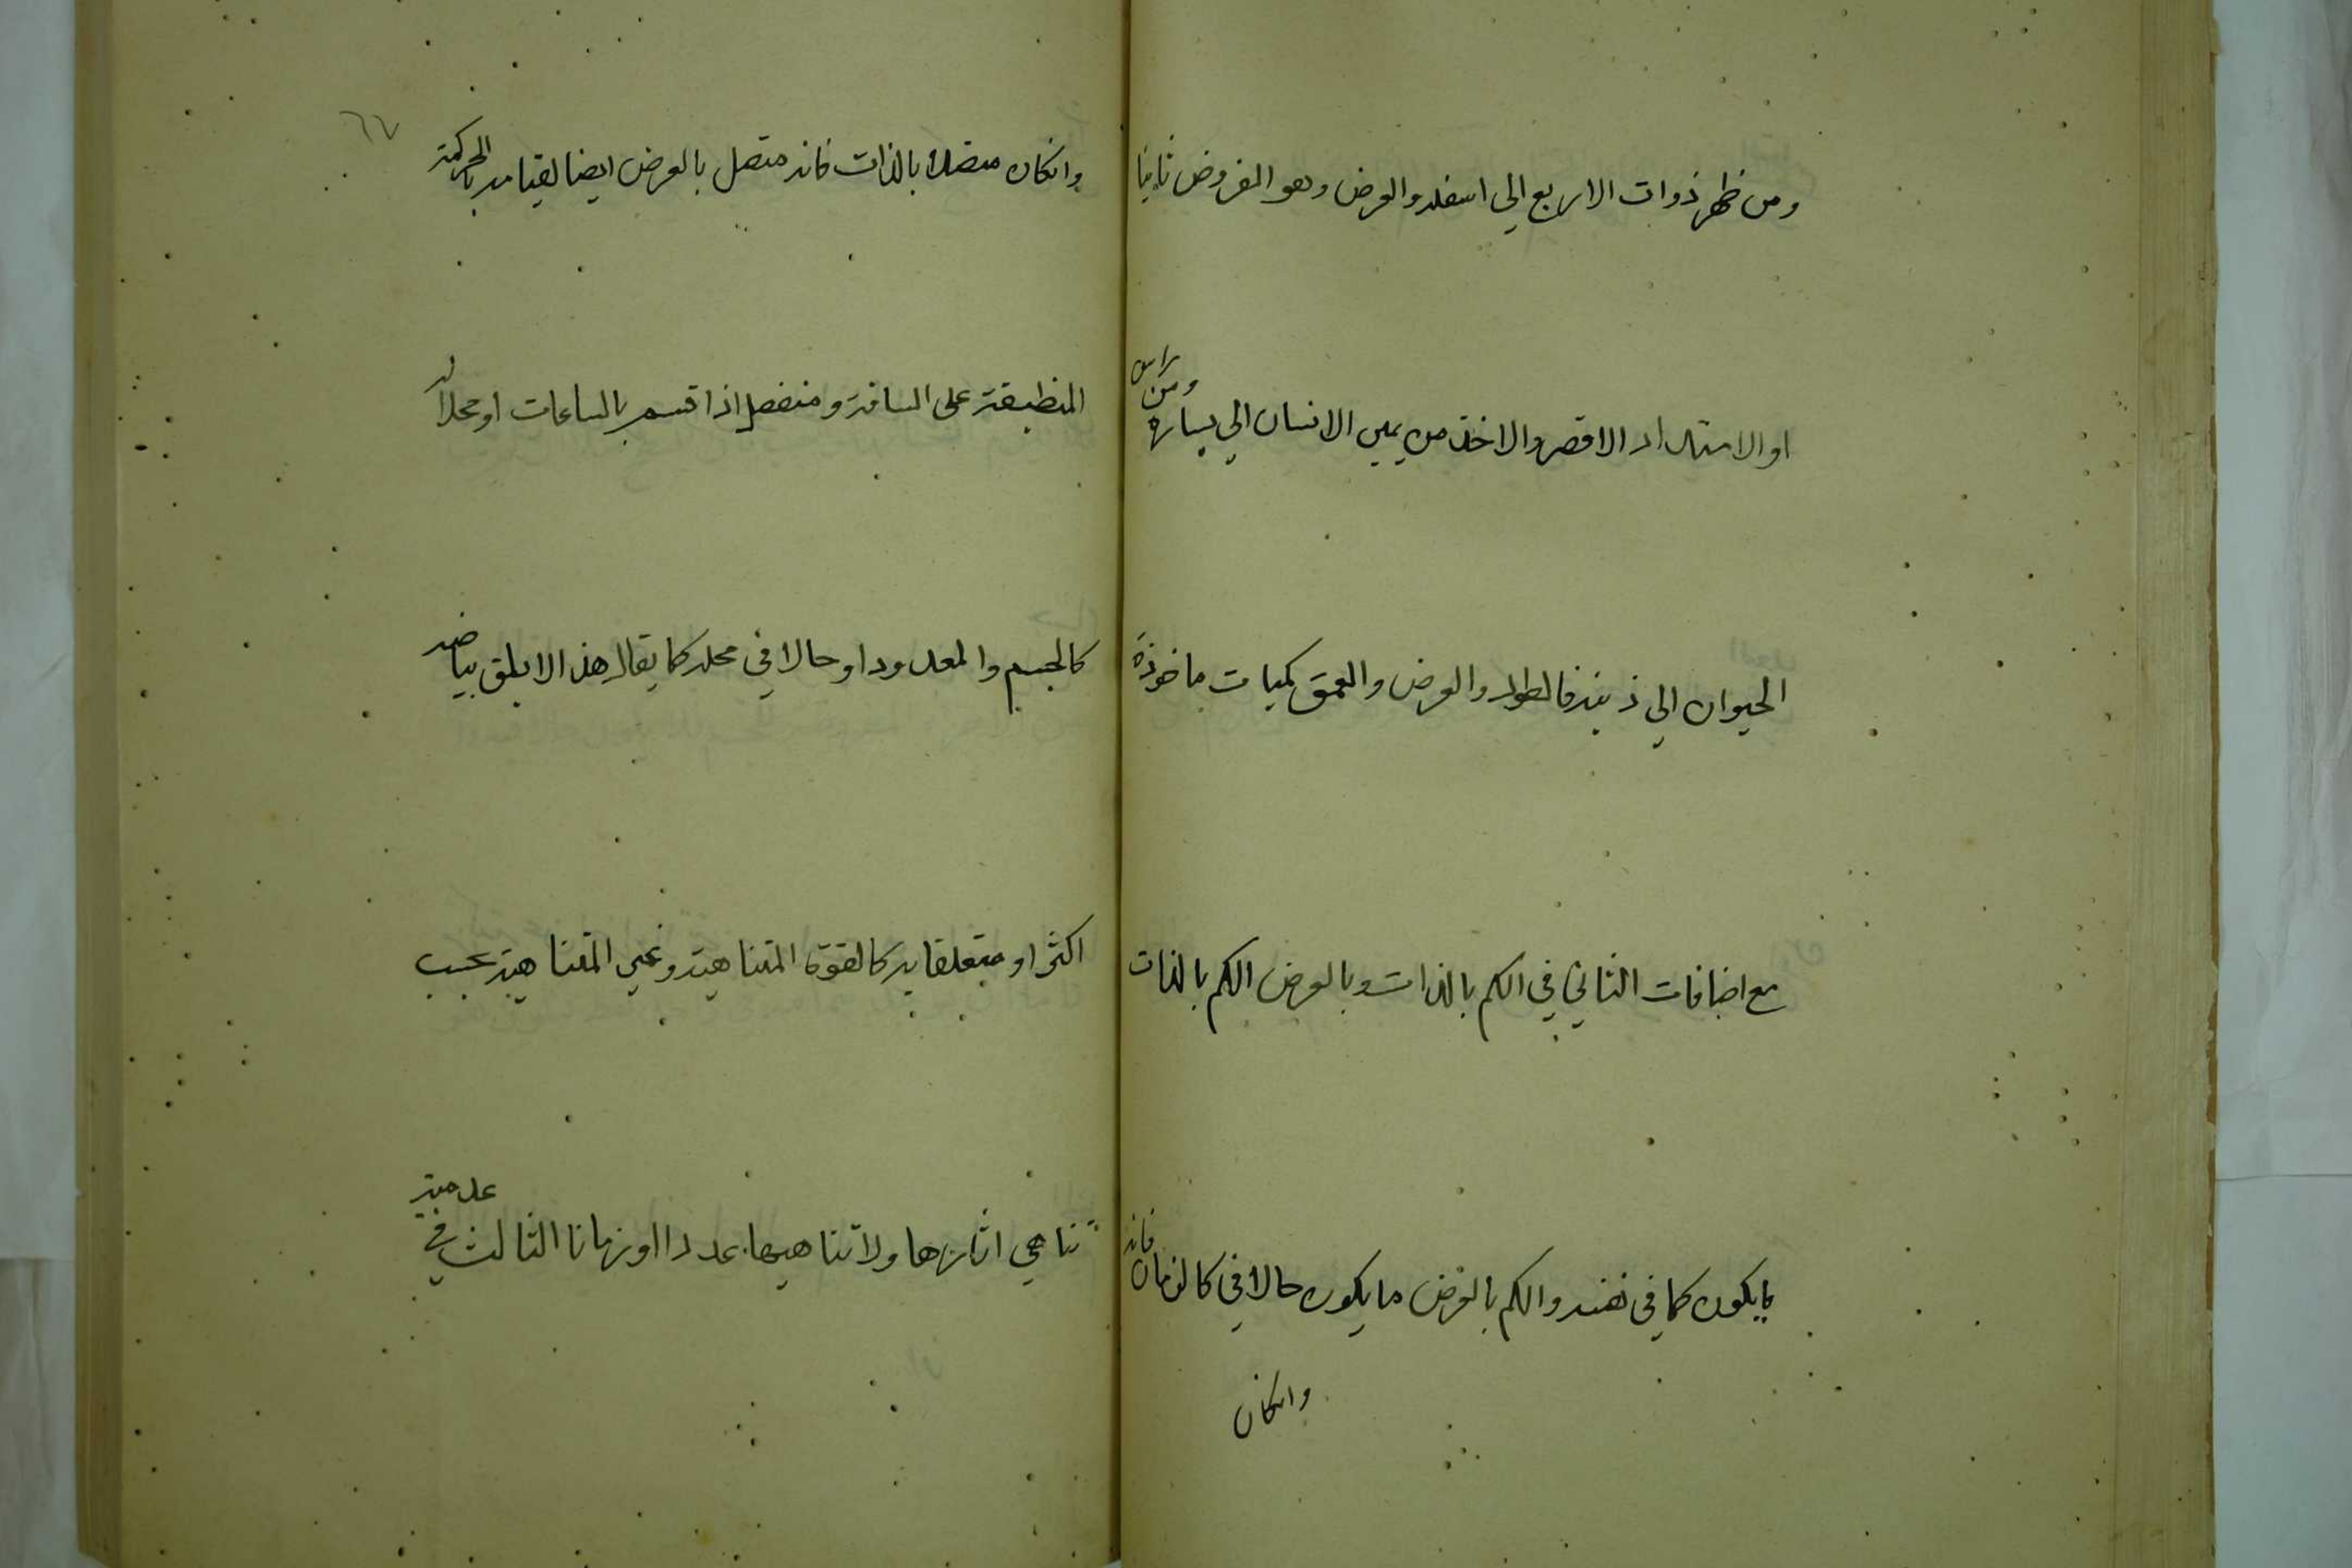 ومن ظهر ذوات الاربع الي اسفله والعرض وهو المفروض ثانيا
او الامتداد الاقصر والاخذ من يمين الانسان الي يساره ومن راس
الحيوان الي ذنبه فالطول والعرض والعمق كميات ماخوذة
مع اضافات الثاني في الكم بالذات وبالعرض الكم بالذات
ما يكون كما في نفسه والكم بالعرض ما يكون حالا في كالزمان فانه
وانكان
٦٧
وانكان متصلا بالذات فانه متصل بالعرض ايضا لقيامه بالحركة
المنطبقة على المسافة ومنفصل اذا قسم بالساعات او محلا له
كالجسم والمعدود او حالا في محله كما يقال هذا الابلق بياضه
اكثر او متعلقا به كالقوة المتناهية وغير المتناهية بحسب
تناهي اثارها ولا تناهيها عددا او زمانا الثالث في عدمية